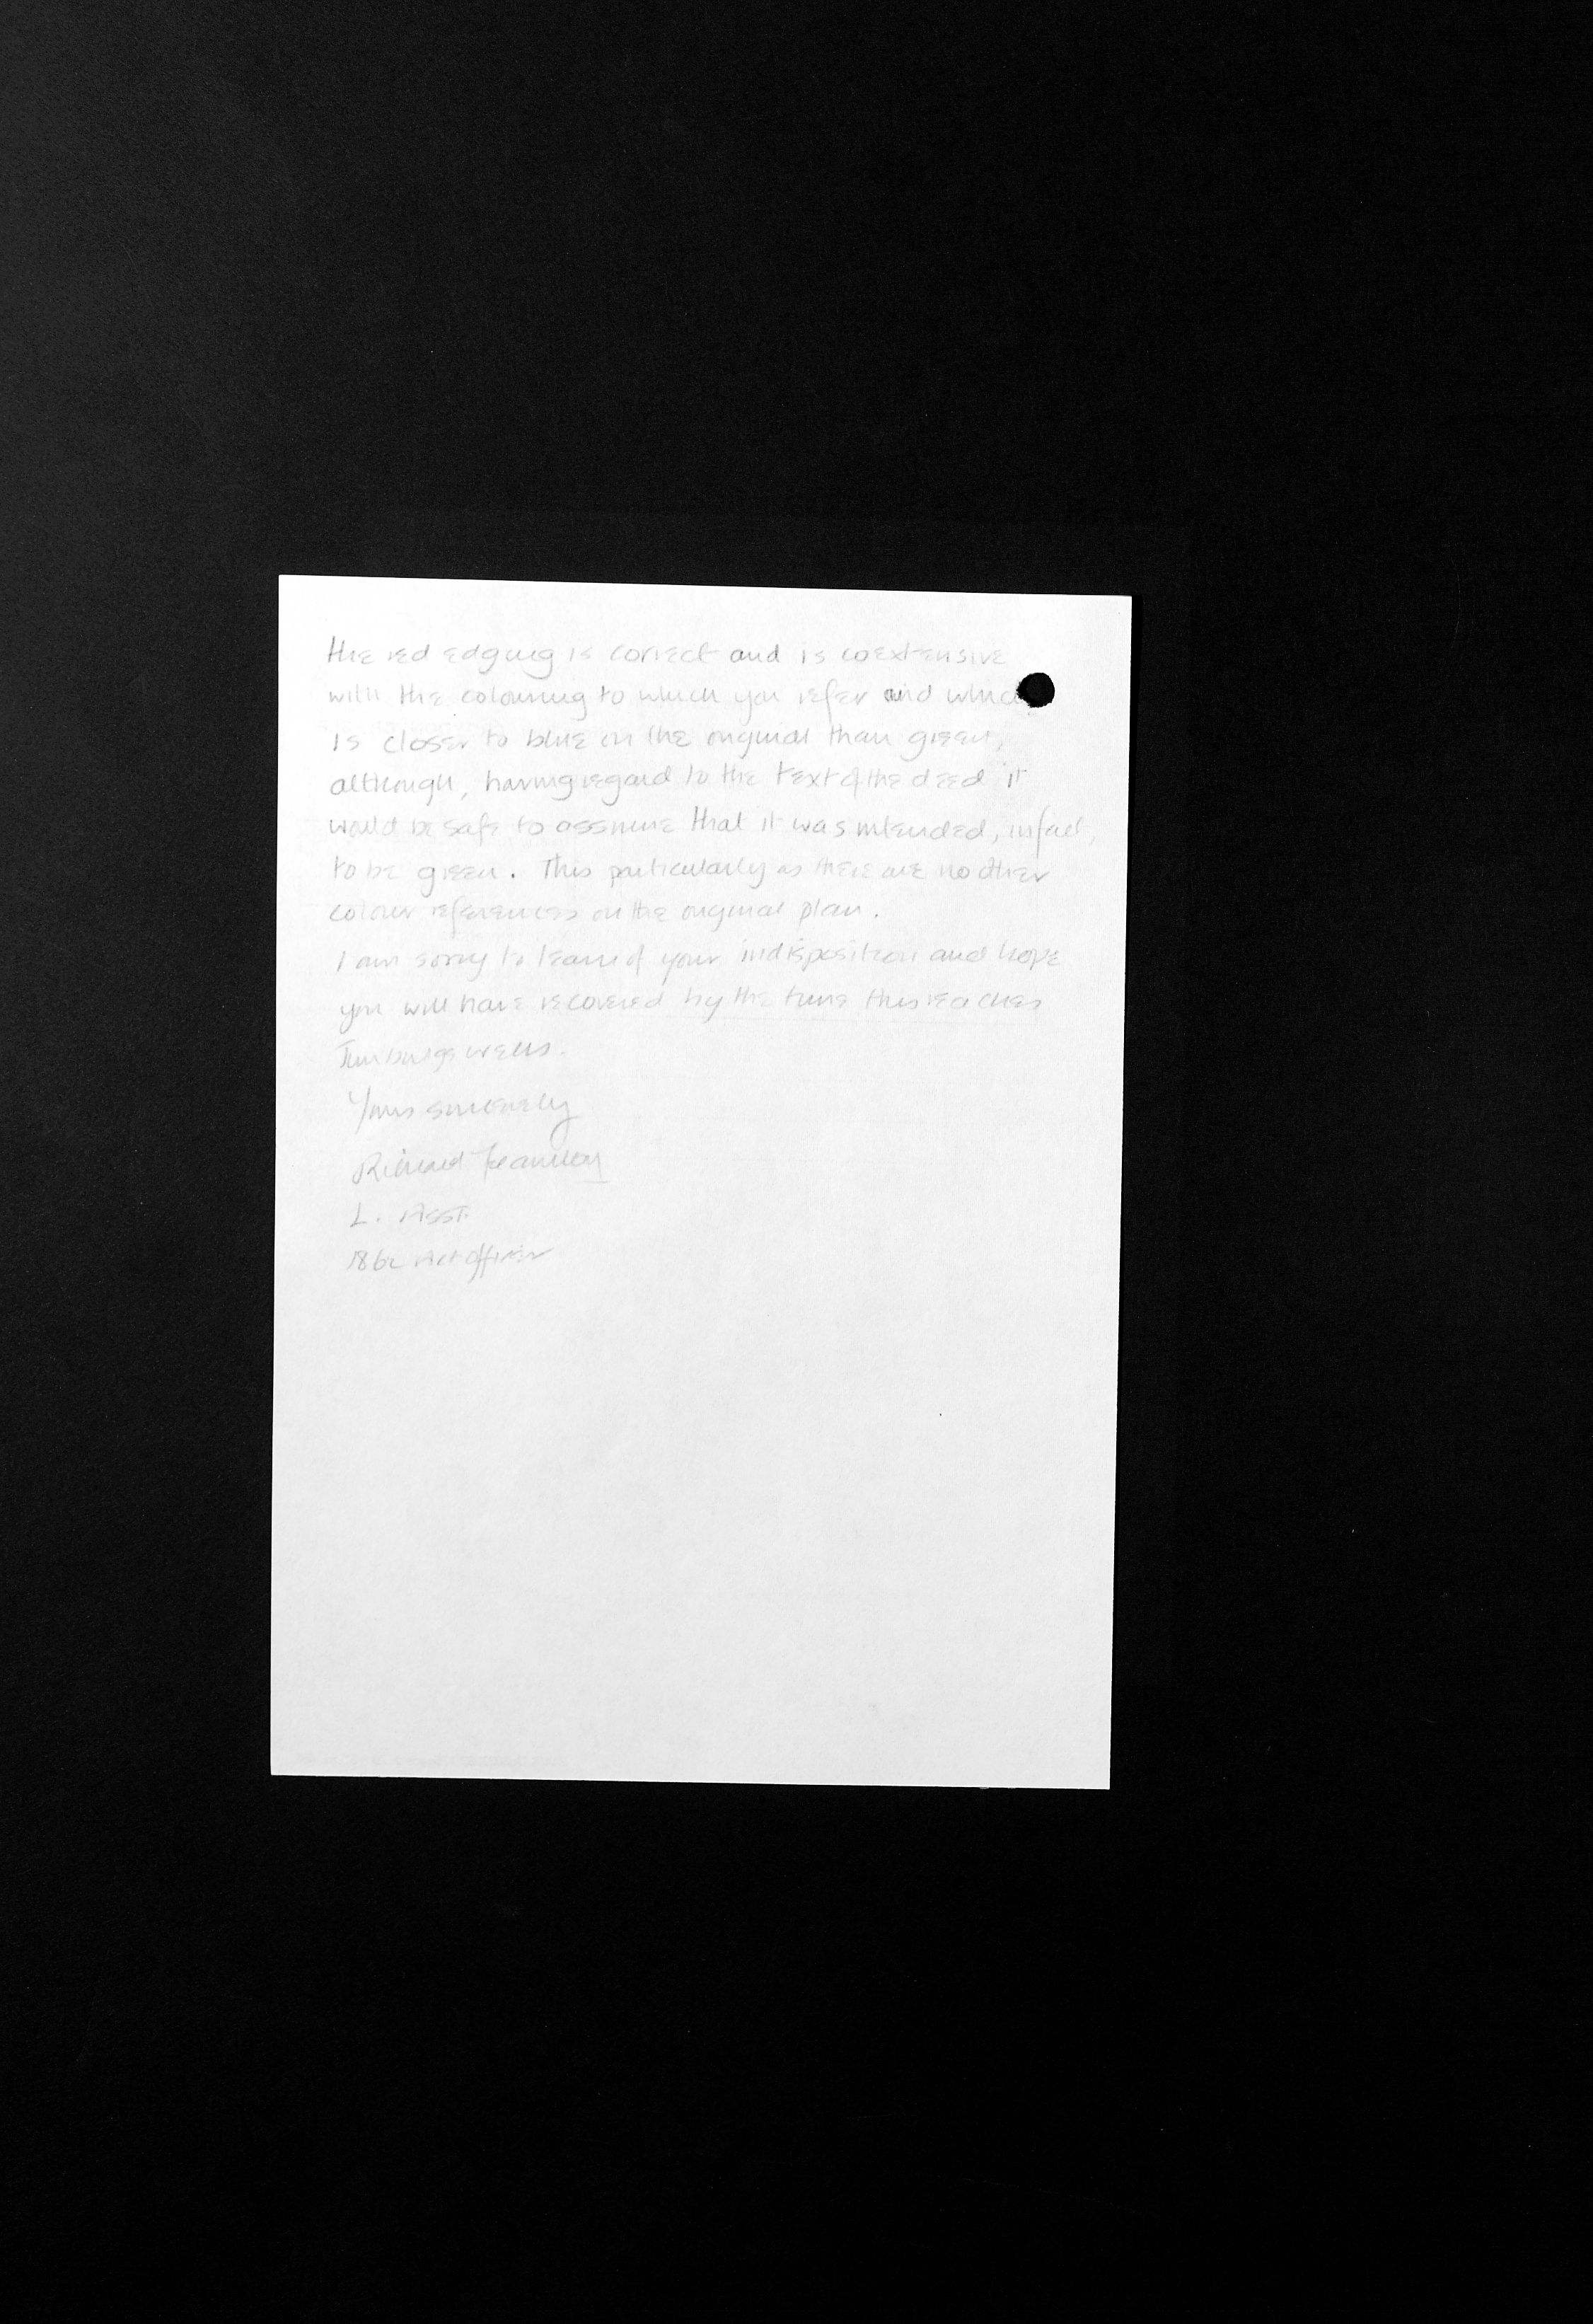 the red edging is correct and is coextensive
with the colouring to which you refer and which
is closer to blue on the original than green,
although, having regard to the text of the deed it
would be safe to assume that it was intended, in fact,
to be green. This particularly as there are no other
colour references on the original plan.
I am sorry to learn of your indisposition and hope
you will have recovered by the time this reaches
Tunbridge Wells.
Yours sincerely
Richard
L. Asst.
1862 Act Officer